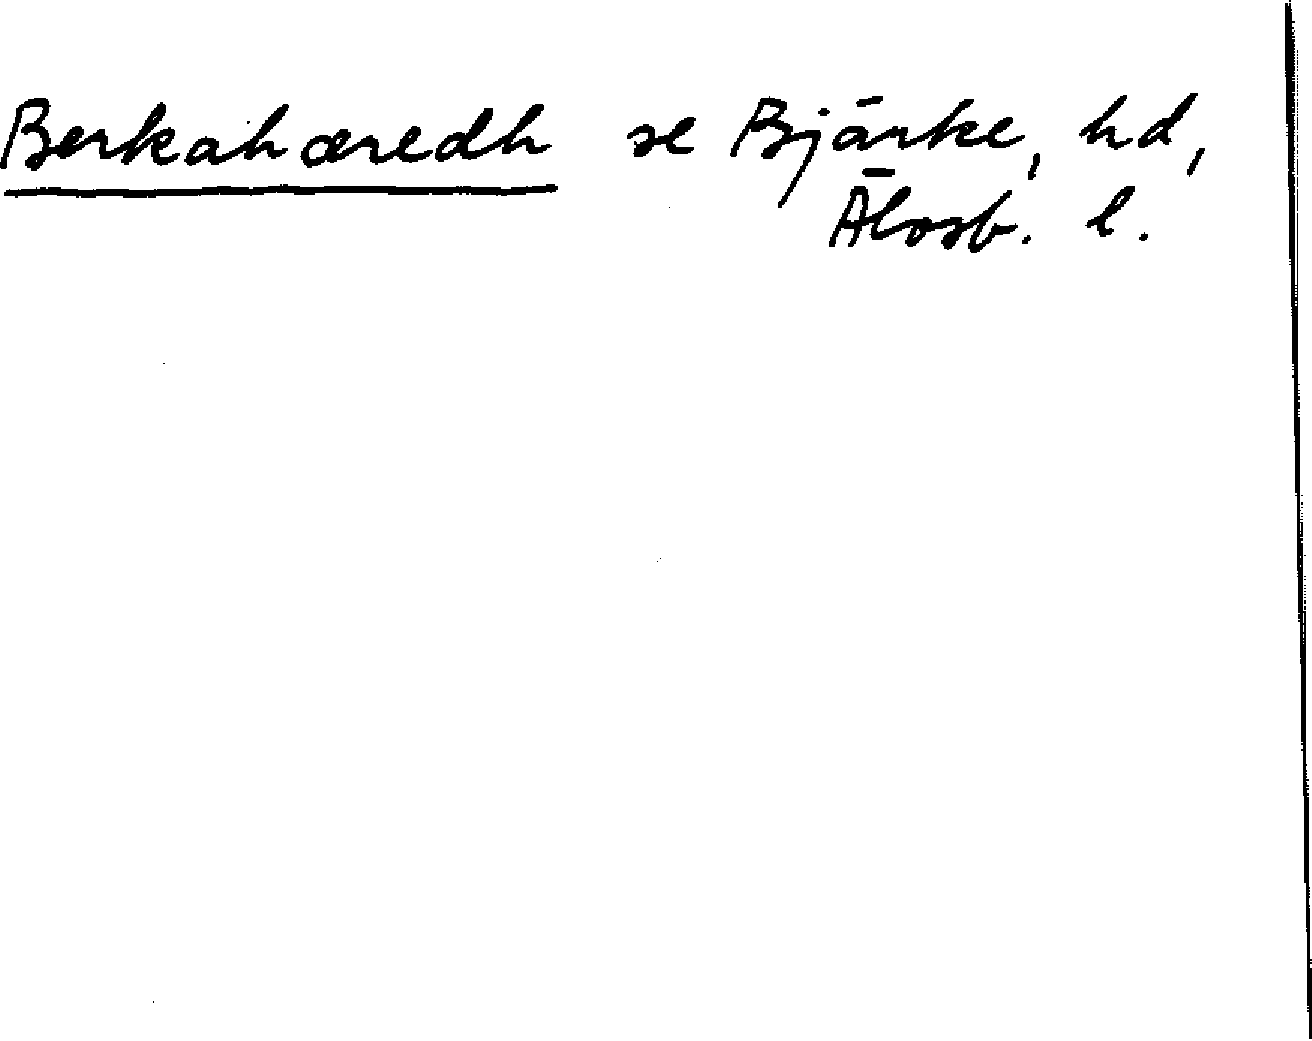 Berkahæredh se Bjärke, hd,
Älvsb. l.